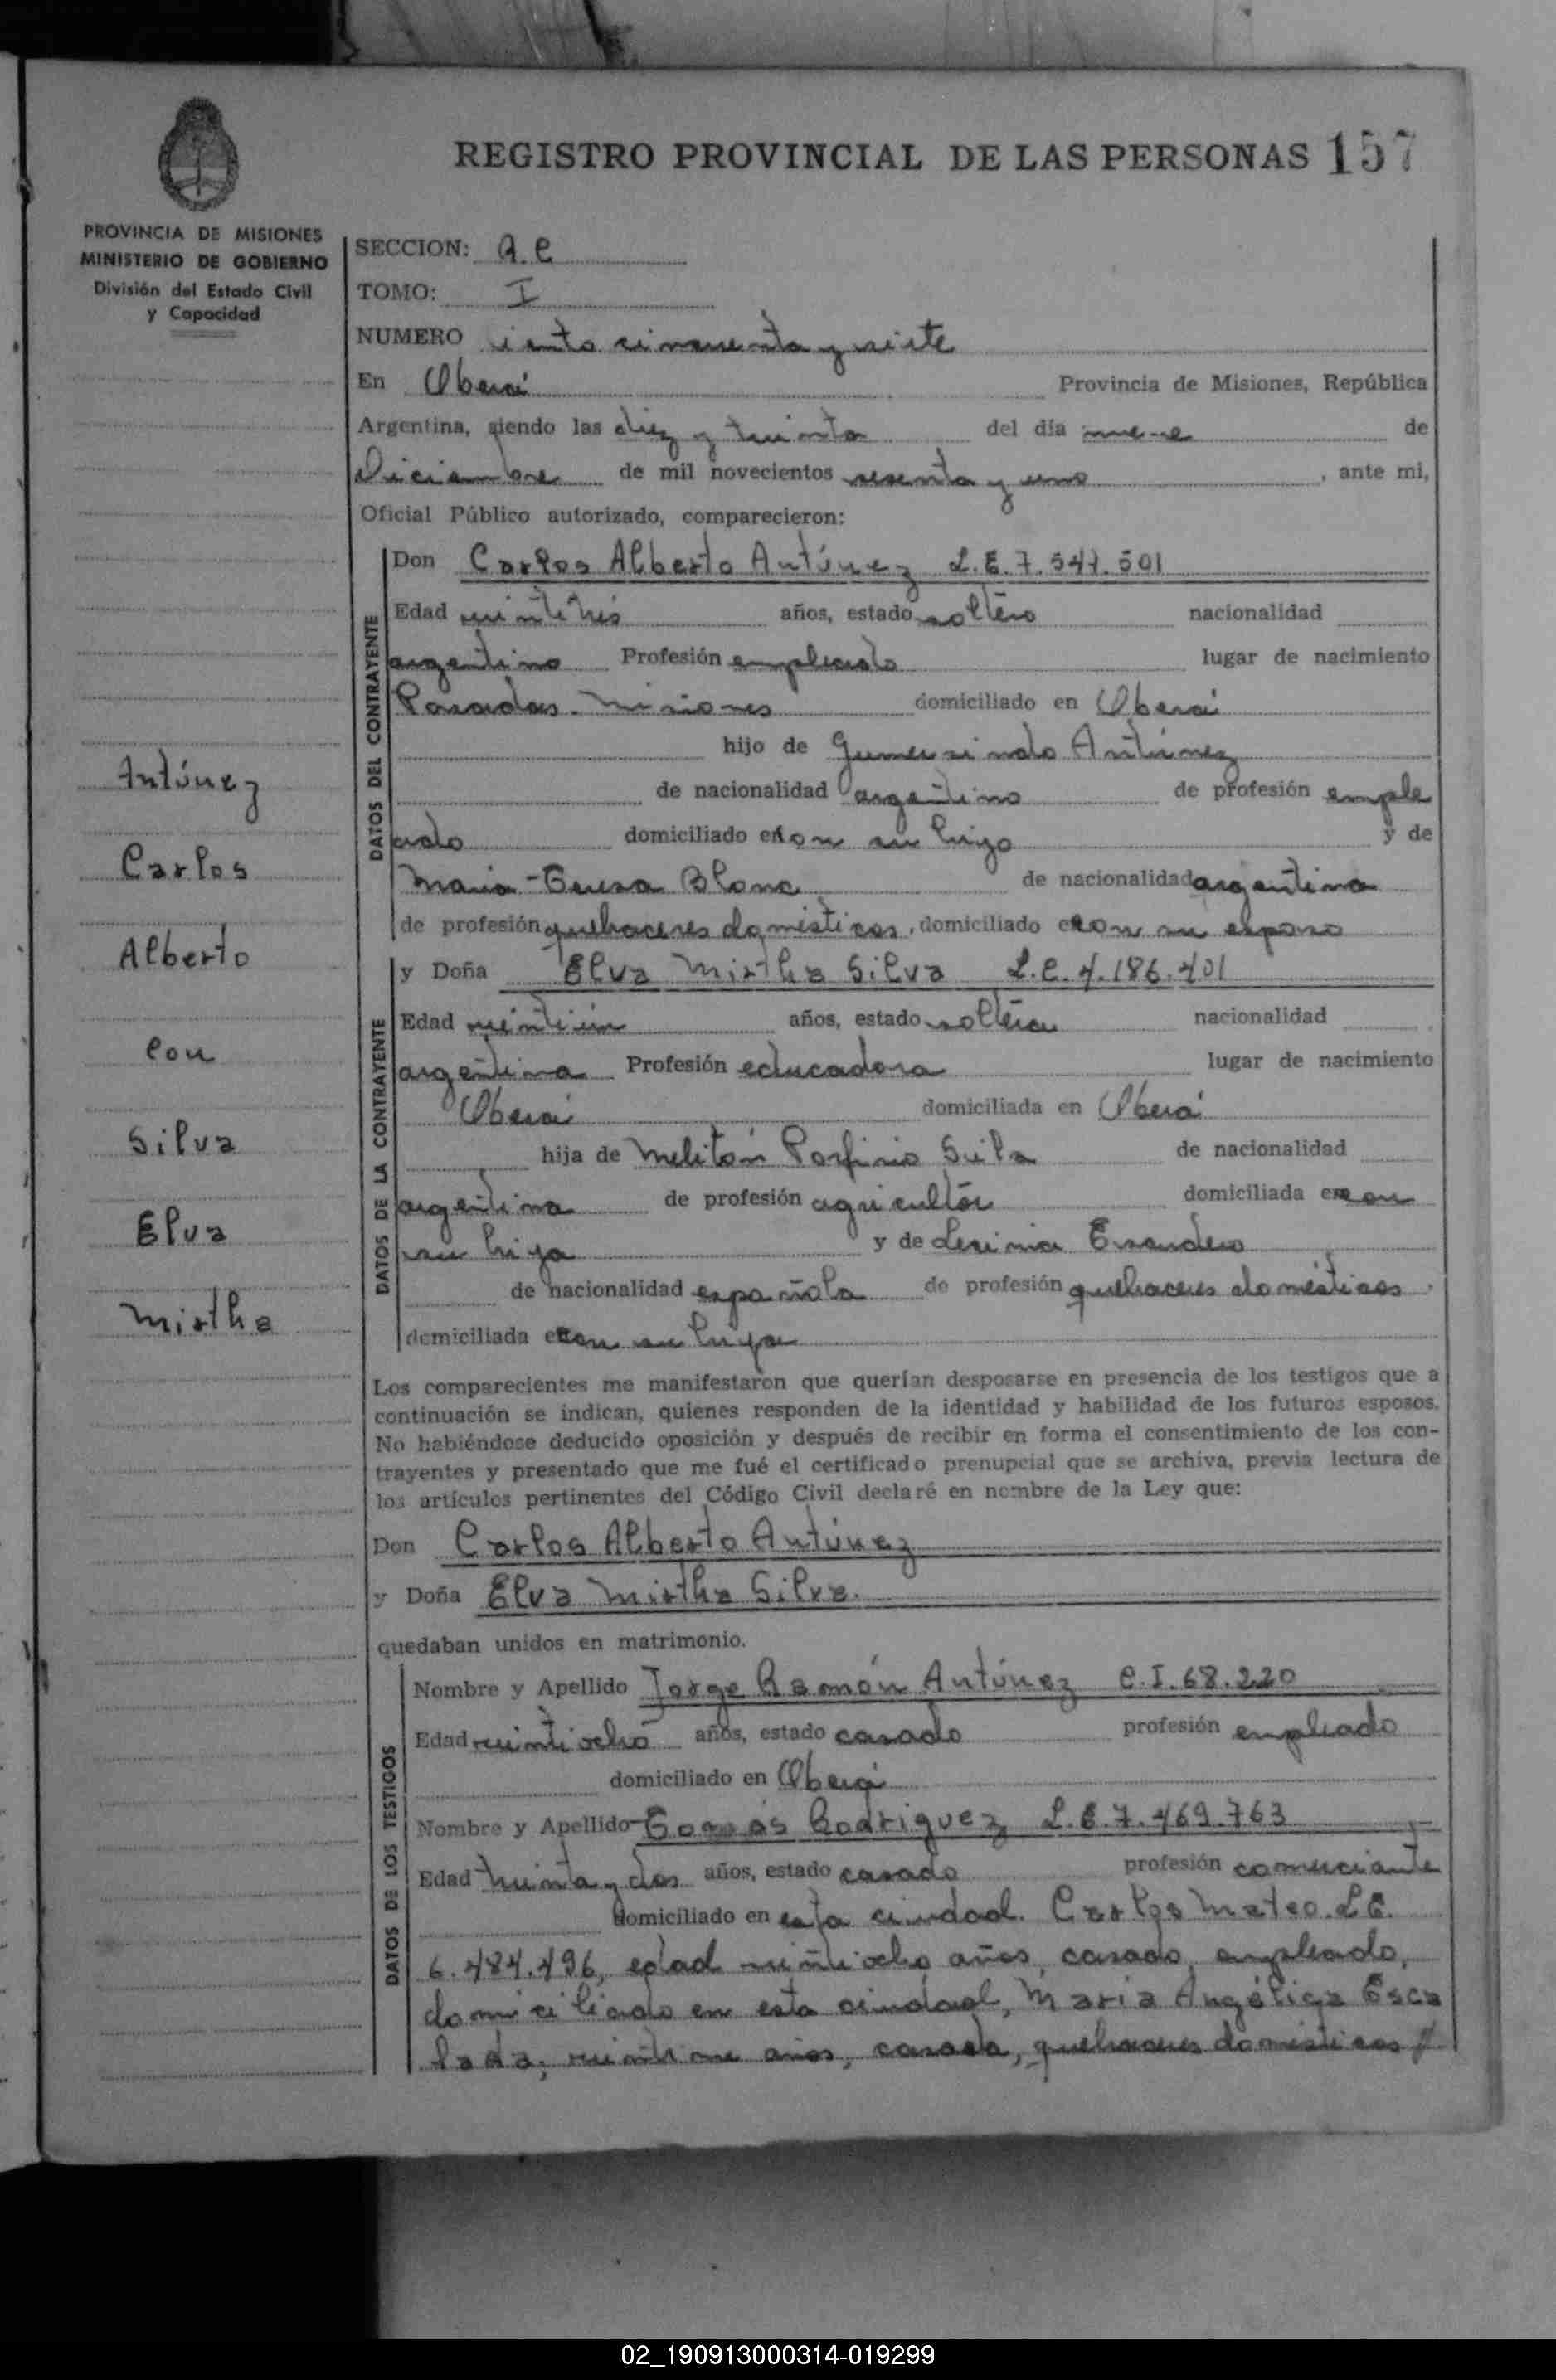 REGISTRO PROVINCIAL DE LAS PERSONAS 157
PROVINCIA DE MISIONES
MINISTERIO DE GOBIERNO
División del Estado Civil
y Capacidad
SECCION: A.C
TOMO: I
NUMERO ciento cincuenta y siete
En Oberá Provincia de Misiones, República
Argentina, siendo las diez y treinta del día nueve de
Diciembre de mil novecientos sesenta y uno, ante mi,
Oficial Público autorizado, comparecieron:
DATOS DEL CONTRAYENTE
Don Carlos Alberto Antúnez L.E. 7.547.501
Edad veintitrés años, estado soltero nacionalidad
argentino Profesión empleado lugar de nacimiento
Posadas. Misiones domiciliado en Oberá
hijo de Gumersindo Antúnez
de nacionalidad argentino de profesión emple
ado domiciliado en con su hijo y de
Maria Teresa Blanc de nacionalidad argentina
de profesión quehaceres domésticos, domiciliado en con su esposo
DATOS DE LA CONTRAYENTE
y Doña Elva Mirtha Silva L.C. 4.186.401
Edad veintiún años, estado soltera nacionalidad
argentina Profesión educadora lugar de nacimiento
Oberá domiciliada en Oberá
hija de Melitón Porfirio Silva de nacionalidad
argentina de profesión agricultor domiciliada en con
su hija y de
de nacionalidad española de profesión quehaceres domésticos
domiciliada en con su hija
Antúnez
Carlos
Alberto
con
Silva
Elva
Mirtha
Los comparecientes me manifestaron que querían desposarse en presencia de los testigos que a
continuación se indican, quienes responden de la identidad y habilidad de los futuros esposos.
No habiéndose deducido oposición y después de recibir en forma el consentimiento de los con-
trayentes y presentado que me fué el certificado prenupcial que se archiva, previa lectura de
los artículos pertinentes del Código Civil declaré en nombre de la Ley que:
Don Carlos Alberto Antúnez
y Doña Elva Mirtha Silva.
quedaban unidos en matrimonio.
DATOS DE LOS TESTIGOS
Nombre y Apellido Jorge Ramón Antúnez C.I. 68.220
Edad veintiocho años, estado casado profesión empleado
domiciliado en Oberá
Nombre y Apellido Tomás Rodriguez L.E. 7.469.763
Edad treinta y dos años, estado casado profesión comerciante
domiciliado en esta ciudad. Carlos Mateo. L.E.
6.484.496, edad veintiocho años, casado, empleado,
domiciliado en esta ciudad, Maria Angélica Esca
lada, años, casada, quehaceres domésticos //
02_190913000314-019299